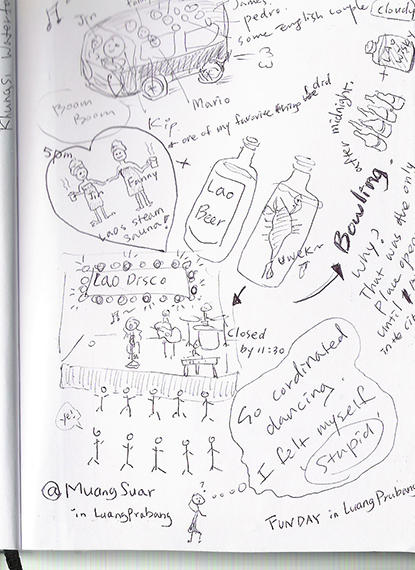 Jin
James
pedro.
some English couple
cloudy
Khungsi
Mario
Boom
Boom
Kip.
* one of my favorite things
Lao
Wisky
+
after midnight.
5pm
Jin
Fanny
Laos steam
sauna!
Lao
Beer
uwek~
Bowling.
Why?
That was the only
Place open
until
in the
Lao Disco
Closed
by 11:30
ye!
So cordinated
dancing.
I felt myself
Stupid
?
@ Muang Suar
in LuangPrabang
FUNDAY in LuangPrabang